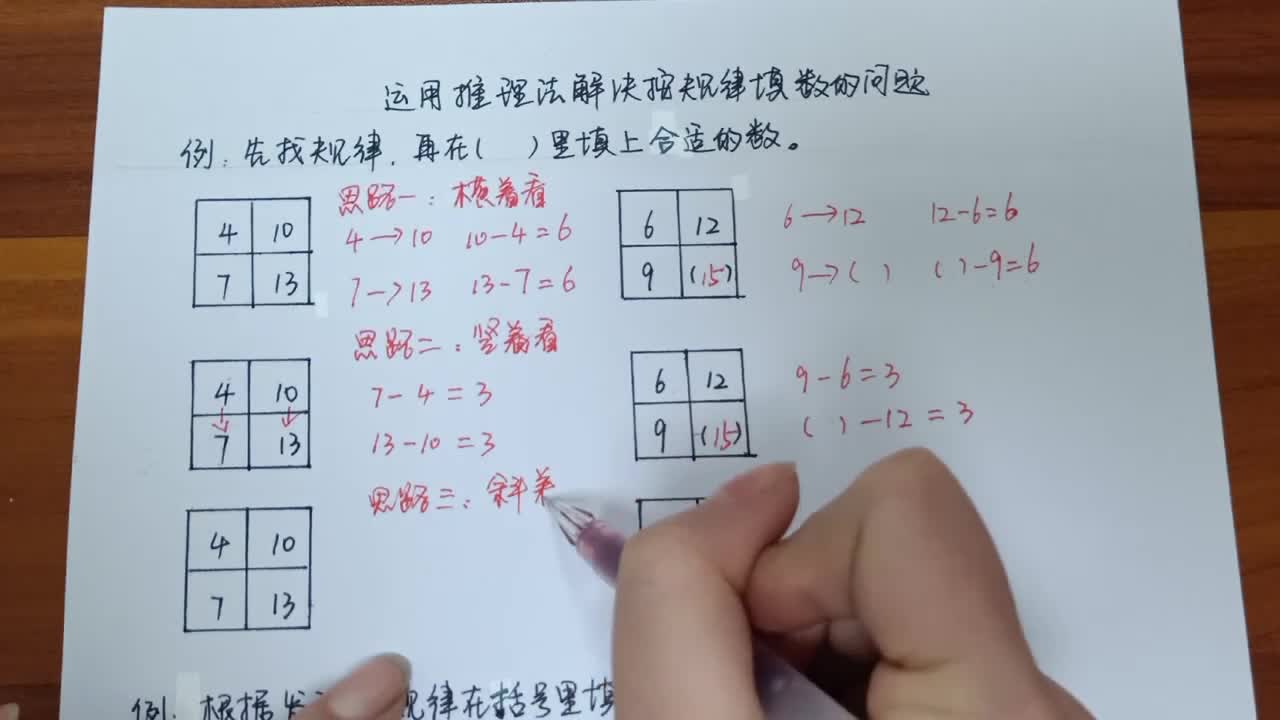 运用推理法解决按规律填数的问题
例：先找规律，再在(  )里填上合适的数。
4 10
7 13
思路一：横着看
4→10 10-4=6
7→13 13-7=6
6 12
9 (15)
6→12 12-6=6
9→( ) ( )-9=6
4 10
7 13
思路二：竖着看
7-4=3
13-10=3
6 12
9 (15)
9-6=3
( )-12=3
4 10
7 13
思路三：斜着
例：根据 规律在括号里填